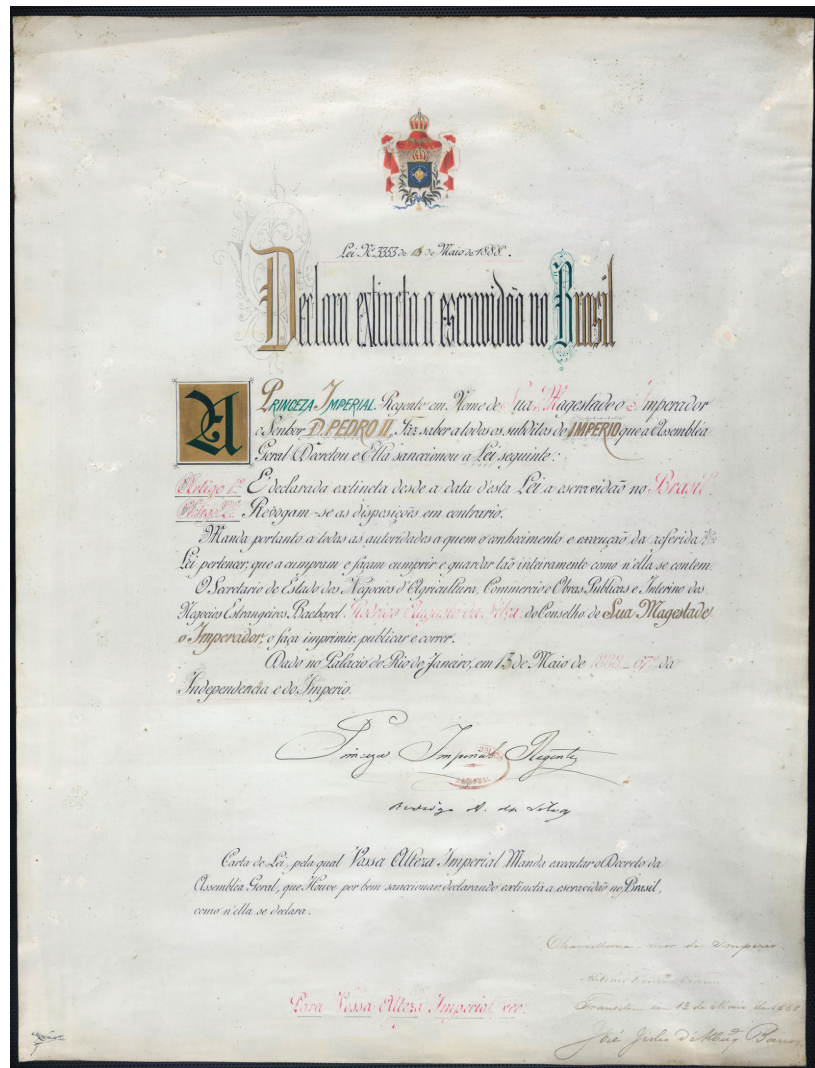 Lei Nº 3353 de 13 de Maio de 1888.
Declara extincta a escravidão no Brasil
A PRINCEZA IMPERIAL Regente em Nome de Sua Magestade o Imperador
o Senhor D. PEDRO II, Faz saber a todos os subditos do IMPERIO que a Assembléa
Geral Decretou e Ella sanccionou a Lei seguinte:
Artigo 1º É declarada extincta desde a data d'esta Lei a escravidão no Brasil.
Artigo 2º Revogam-se as disposições em contrario.
Manda portanto a todas as autoridades a quem o conhecimento e execução da referida
Lei pertencer, que a cumpram e façam cumprir e guardar tão inteiramente como n'ella se contem.
O Secretario de Estado dos Negocios d'Agricultura, Commercio e Obras Publicas e Interino dos
Negocios Estrangeiros Bacharel Rodrigo Augusto da Silva, do Conselho de Sua Magestade
o Imperador, o faça imprimir, publicar e correr.
Dado no Palacio do Rio de Janeiro, em 13 de Maio de 1888 - 67º da
Independencia e do Imperio.
Princeza Imperial Regente
Rodrigo A. da Silva
Carta de Lei, pela qual Vossa Alteza Imperial Manda executar o Decreto da
Assembléa Geral, que Houve por bem sanccionar declarando extincta a escravidão no Brasil,
como n'ella se declara.
Chancellaria-mor do Imperio.
Para Vossa Alteza Imperial ver.
Transitou em 13 de Maio de 1888
José Julio d'Albuqº Barros